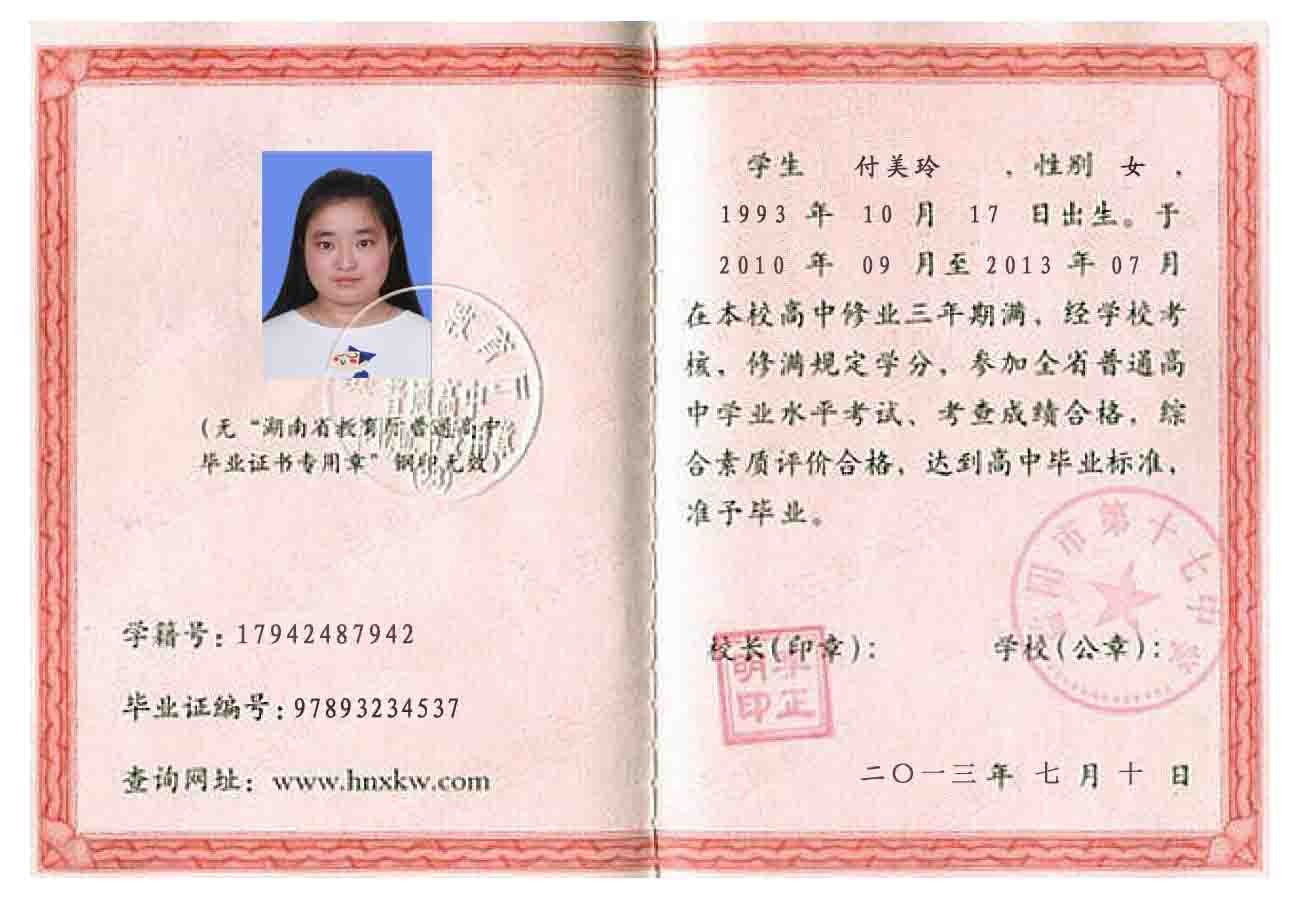 教育厅
普通高中
(无“湖南省教育厅普通高中
毕业证书专用章”钢印无效)
学籍号:17942487942
毕业证编号:97893234537
查询网址:www.hnxkw.com
学生 付美玲 ,性别 女 ,
1993 年 10 月 17 日出生。于
2010 年 09 月至 2013 年 07 月
在本校高中修业三年期满、经学校考
核,修满规定学分,参加全省普通高
中学业水平考试、考查成绩合格,综
合素质评价合格,达到高中毕业标准,
准予毕业。
市第十七中
校长(印章): 学校(公章):
二〇一三年 七 月 十 日